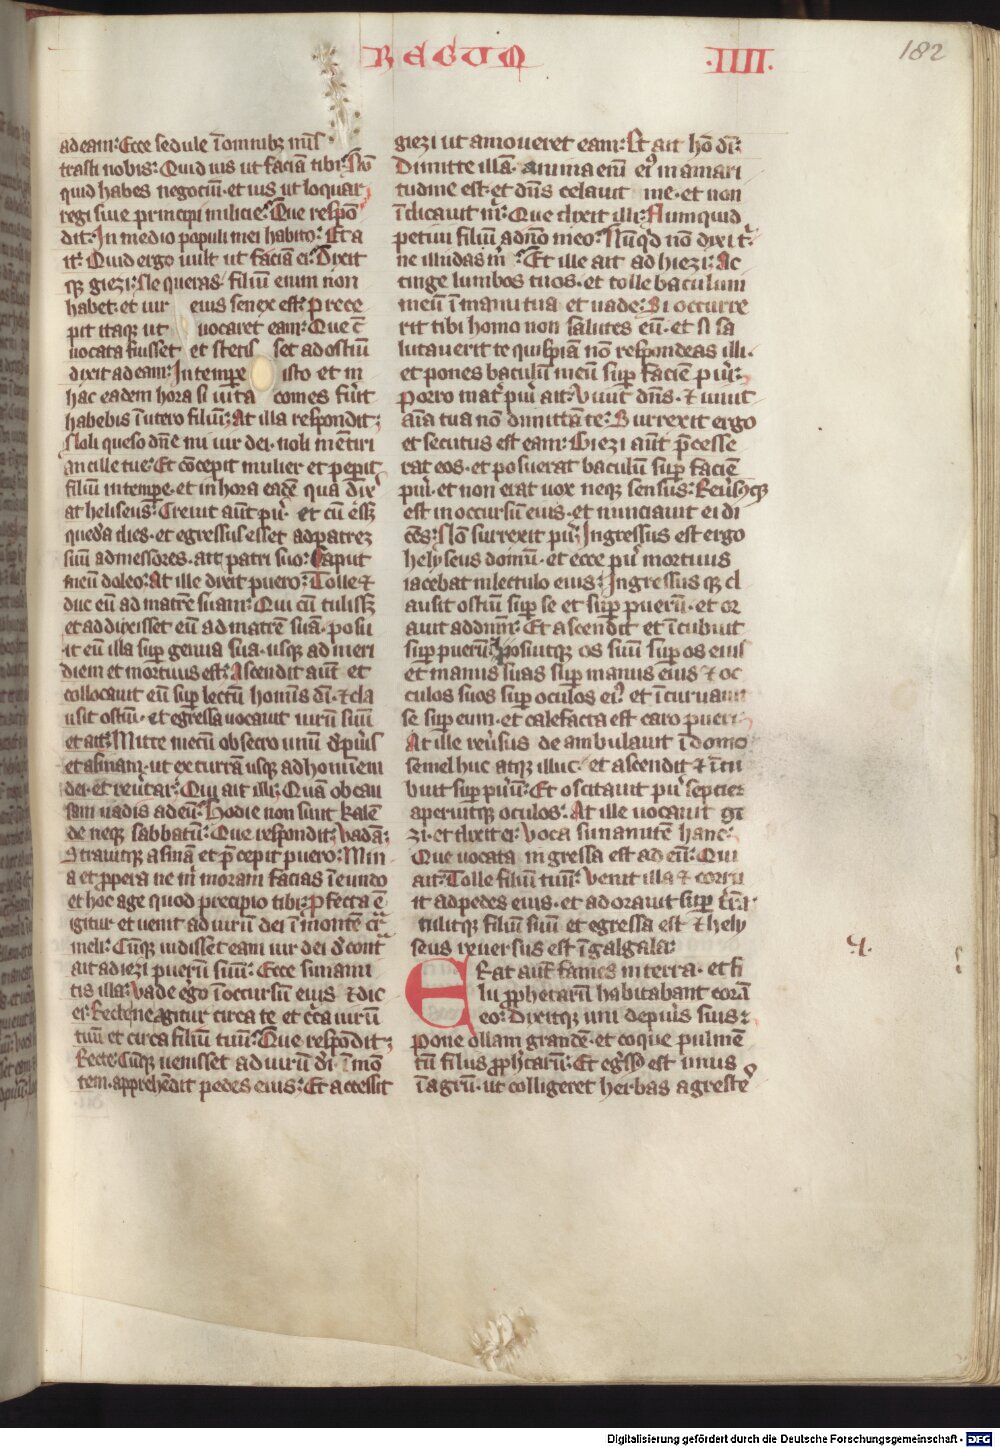 REGUM
.IIII.
182
ad eam: Ecce sedule ī omnibꝫ mīs
trasti nobis: Quid uis ut faciā tibi: Nū
quid habes negociū· et uis ut loquar
regi siue principi milicie: Que respō
dit: In medio populi mei habito: Et a
it: Quid ergo uult ut faciā ei: Dixit
qꝫ giezi: Ne queras filiū enim non
habet· et uir eius senex est: Prece
pit itaqꝫ ut uocaret eam: Que c̄
uocata fuisset et stetis set ad ostiū
dixit ad eam: In tempe isto et in
hac eadem hora si uita comes fūit
habebis ī utero filiū: At illa respondit:
Noli queso dn̄e mi uir dei· noli mētiri
ancille tue: Et cōcepit mulier et peperit
filiū in tempe· et in hora eadē qua dix͛
at heliseus: Creuit aūt pu͛· et cū eēꝫ
quedā dies· et egressus esset ad patreꝫ
suū ad messores· ait patri suo: Caput
meū doleo: At ille dixit puero: Tolle ⁊
duc eū ad matrē suam: Qui cū tulissꝫ
et addixisset eū ad matrē suā· posu
it eū illa suꝑ genua sua· usqꝫ ad meri
diem et mortuus est: Ascendit aūt et
collocauit eū suꝑ lectū hominis dī· ⁊ cla
usit ostiū· et egressa uocauit uirū suū
et ait: Mitte mecū obsecro unū d̄ pu͛is
et asinam· ut excurrā usqꝫ ad hominem
dei· et reu͛tar: Qui ait illi: Quā ob cau
sam uadis ad eū: Hodie non sunt kalē
de neqꝫ sabbatū: Que respondit: Vadā:
Strauitqꝫ asinā et p̄cepit puero: Min
a et ꝓpera ne m͛ moram facias ī eundo
et hoc age quod precipio tibi: ꝓfecta ē
igitur et uenit ad uirū dei ī montē car
meli: Cūqꝫ uidisset eam uir dei d̄ cont͛
ait ad iezi puerū suū: Ecce sunami
tis illa: Vade ego ī occursū eius ⁊ dic
ei: Recte ne agitur circa te et c͛ca uirū
tuū et circa filiū tuū: Que respondit:
Recte: Cūqꝫ uenisset ad uirū dī ī mō
tem· apprehēdit pedes eius: Et accessit
giezi ut amoueret eam: Et ait hō dī:
Dimitte illā· anima enī ei9 in amari
tudine est· et dn̄s celauit me· et non
īdicauit m͛: Que dixit illi: Numquid
petiui filiū a dn̄o meo: Nūqd nō dixi t͛:
ne illudas m͛: Et ille ait ad hiezi: Ac
cinge lumbos tuos· et tolle baculum
meū ī manu tua et uade: Si occurre
rit tibi homo non salutes eū· et si sa
lutauerit te quispiā nō respondeas illi·
et pones baculū meū suꝑ faciē pu͛i:
Porro mat͛ pu͛i ait: Viuit dn̄s· ⁊ uiuit
aīa tua nō dimittā te: Surrexit ergo
et secutus est eam: Giezi aūt p̄cesse
rat eos· et posuerat baculū suꝑ faciē
pu͛i· et non erat uox neqꝫ sensus: Reu͛sqꝫ
est in occursū eius· et nunciauit ei di
cēs: Nō surrexit pu͛: Ingressus est ergo
helyseus domū· et ecce pu͛ mortuus
iacebat in lectulo eius: Ingressus qꝫ cl
ausit ostiū suꝑ se et suꝑ puerū· et or
auit ad dnm: Et ascendit et īcubuit
suꝑ puerū: posuitqꝫ os suū suꝑ os eius
et manus suas suꝑ manus eius ⁊ oc
culos suos suꝑ oculos ei9· et īcuruauit
se suꝑ eum· et calefacta est caro pueri:
At ille reu͛sus deambulauit ī domo
semel huc atqꝫ illuc· et ascendit ⁊ īcu
buit suꝑ pu͛ū: Et oscitauit pu͛ septies
aperuitqꝫ oculos: At ille uocauit gi
zi· et dixit ei: Voca sunamitē hanc:
Que uocata ingressa est ad eū: Qui
ait: Tolle filiū tuū: Venit illa ⁊ corru
it ad pedes eius· et adorauit suꝑ t͛rā·
tulitqꝫ filiū suū et egressa est ⁊ hely
seus reuersus est ī galgala:
Erat aūt fames in terra· et fi
lij ꝓphetarū habitabant corā
eo: Dixitqꝫ uni de pu͛is suis:
Pone ollam grandē· et coque pulmē
tū filijs ꝓphetarū: Et eg͛ssus est unus
ī agrū· ut colligeret herbas agreste
Digitalisierung gefördert durch die Deutsche Forschungsgemeinschaft - DFG